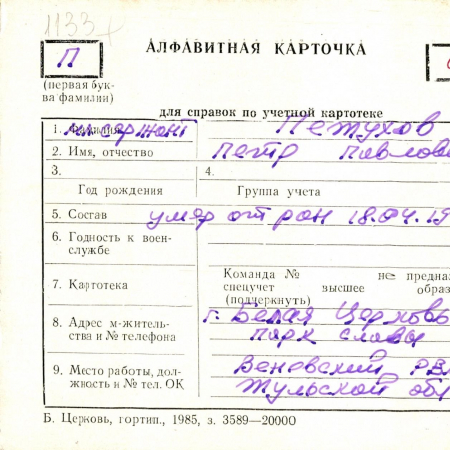 1133
АЛФАВИТНАЯ КАРТОЧКА
П
(первая бук-
ва фамилии)
для справок по учетной картотеке
1. Фамилия мл сержант Петухов
2. Имя, отчество Петр Павлов
3. 4.
Год рождения Группа учета
5. Состав умер от ран 18.04.19
6. Годность к воен-
службе
7. Картотека
Команда № не предна
спецучет высшее образ
(подчеркнуть)
8. Адрес м-житель-
ства и № телефона
г. Белая Церковь
парк славы
9. Место работы, дол-
жность и № тел. ОК
Веневский РВ
Тульской об
Б. Церковь, гортип., 1985, з. 3589—20000